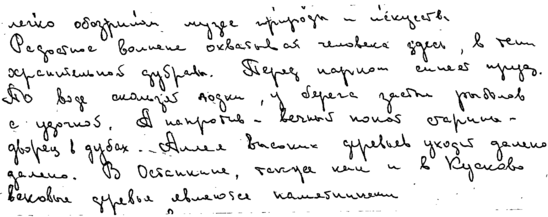 легко обозримом музее природы и искусства
Радостное волнение охватывает человека здесь, в тени
хранительной дубравы. Перед парком синеет пруд.
По воде скользят лодки, у берега застыл рыболов
с удочкой. А напротив - вечный покой старины -
дворец в дубах.. Аллея высоких деревьев уходит далеко
далеко. В Останкине, также как и в Кусково
вековые деревья являются памятниками